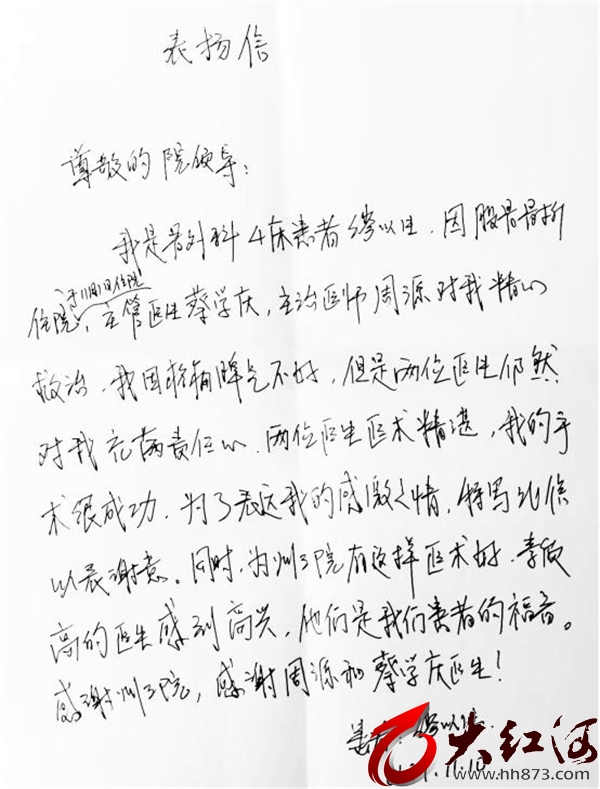 表扬信
尊敬的院领导：
我是骨外科4床患者缪以生，因股骨骨折
于11月1日住院
住院，主管医生蔡学庆，主治医师周源对我精心
救治，我因疼痛脾气不好，但是两位医生仍然
对我充满责任心，两位医生医术精湛，我的手
术很成功，为了表达我的感激之情，特写此信
以表谢意。同时，为州三院有这样医术好、素质
高的医生感到高兴，他们是我们患者的福音。
感谢州三院，感谢周源和蔡学庆医生！
患者：缪以生
11.10
大红河
www.hh873.com